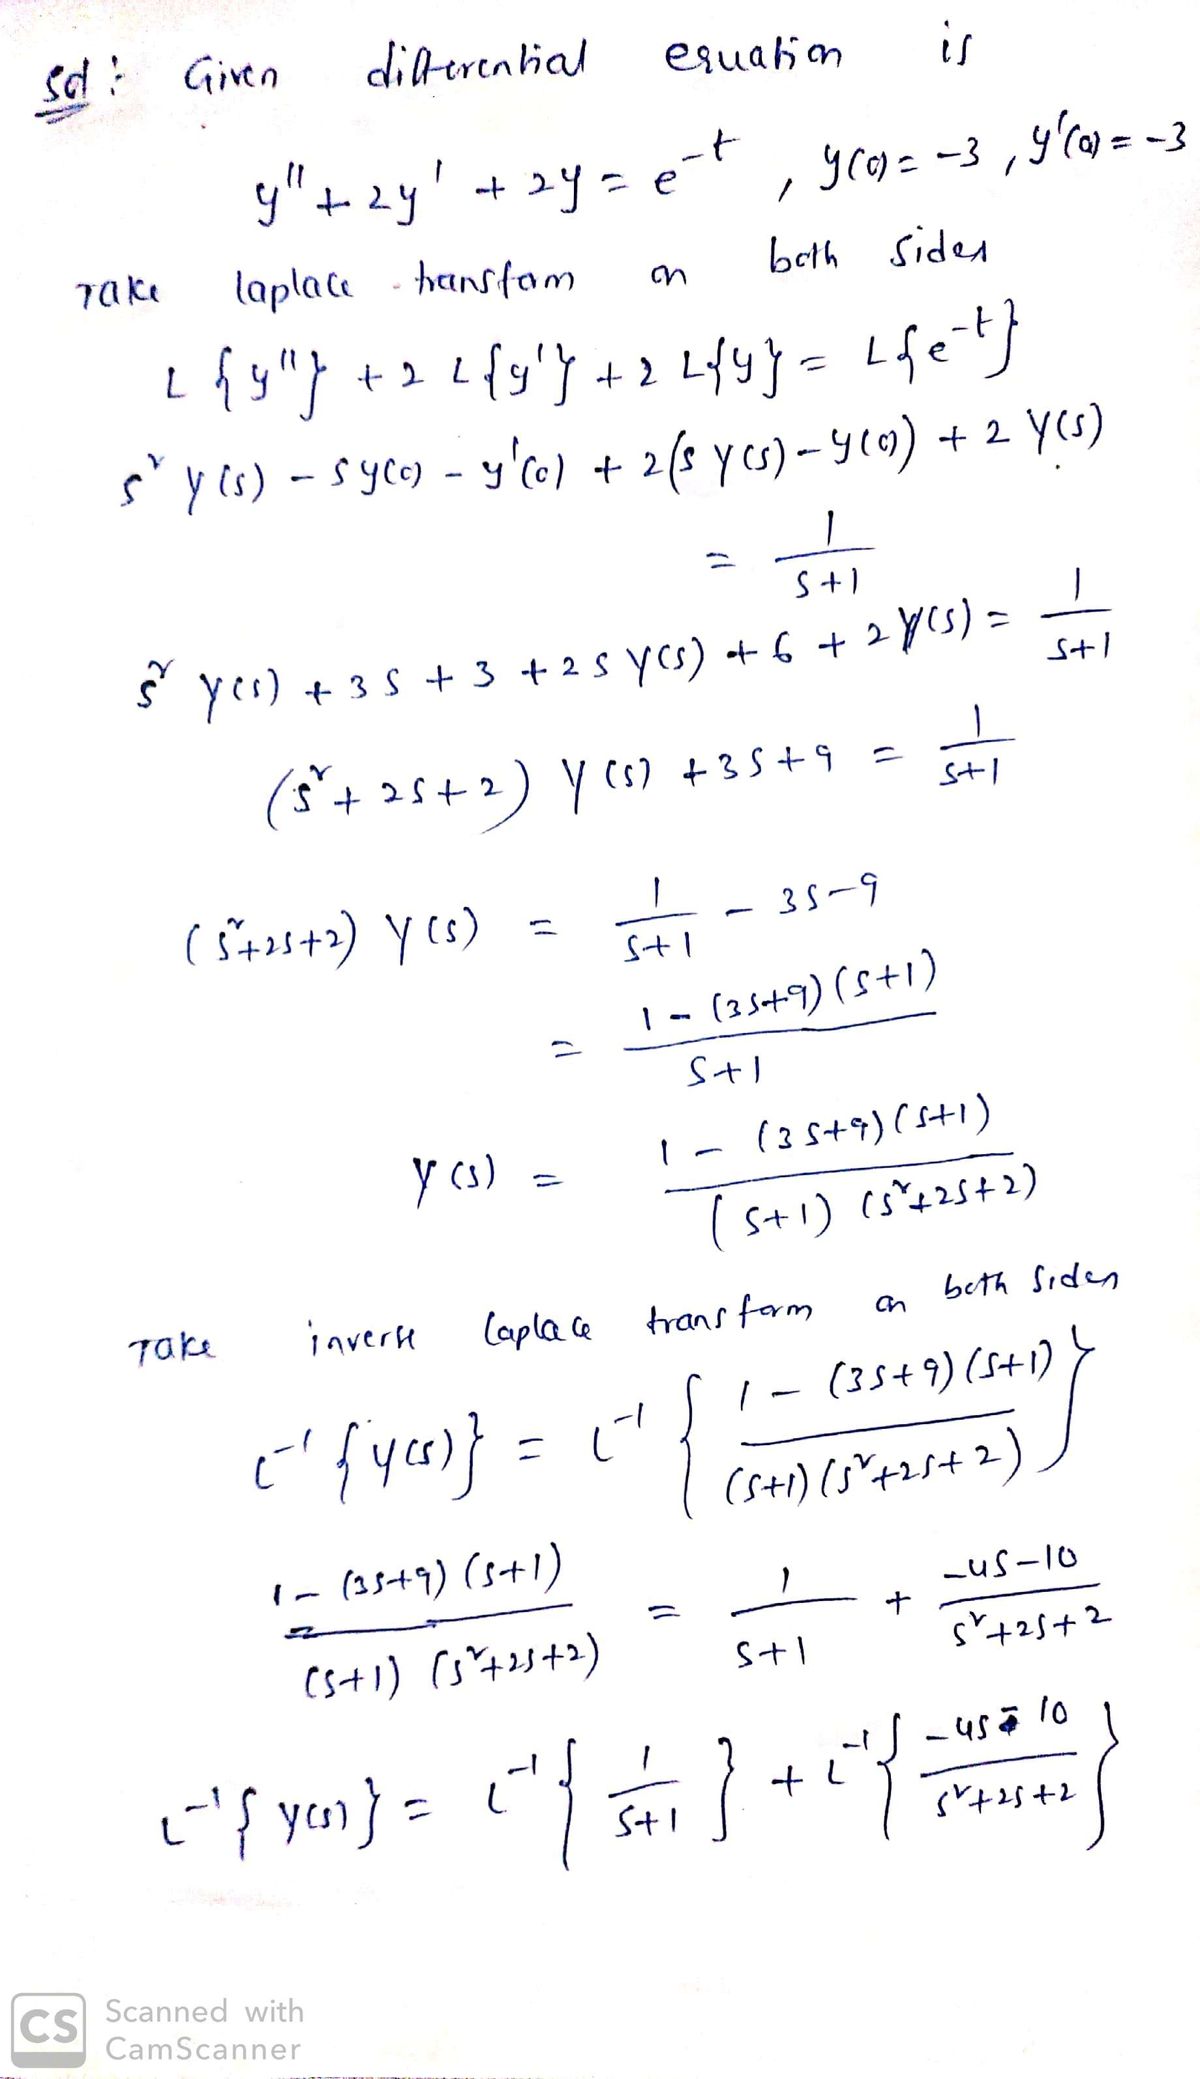 Sol : Given differential equation is
y'' + 2y' + 2y = e^-t , y(0) = -3 , y'(0) = -3
Take laplace transform on both sides
L{y''} + 2 L{y'} + 2 L{y} = L{e^-t}
s² Y(s) - s y(0) - y'(0) + 2(s Y(s) - y(0)) + 2 Y(s)
= 1/(s+1)
s² Y(s) + 3s + 3 + 2s Y(s) + 6 + 2 Y(s) = 1/(s+1)
(s² + 2s + 2) Y(s) + 3s + 9 = 1/(s+1)
(s²+2s+2) Y(s) = 1/(s+1) - 3s - 9
= (1 - (3s+9)(s+1))/(s+1)
Y(s) = (1 - (3s+9)(s+1))/((s+1)(s²+2s+2))
Take inverse laplace transform on both sides
L^-1{y(s)} = L^-1{(1 - (3s+9)(s+1))/((s+1)(s²+2s+2))}
(1 - (3s+9)(s+1))/((s+1)(s²+2s+2)) = 1/(s+1) + (-4s-10)/(s²+2s+2)
L^-1{y(s)} = L^-1{1/(s+1)} + L^-1{(-4s-10)/(s²+2s+2)}
CS Scanned with
CamScanner